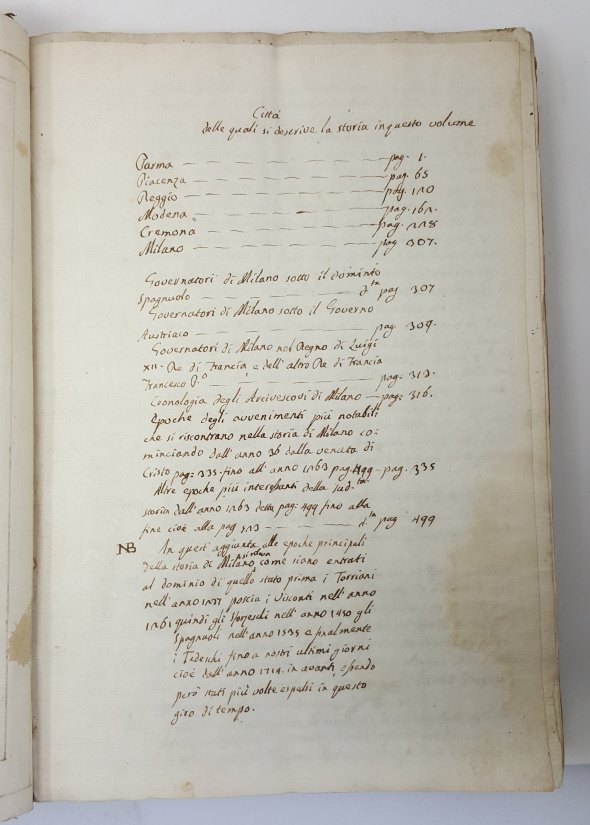 Città
delle quali si descrive la storia in questo volume
Parma — — — — — — — pag. 1.
Piacenza — — — — — — — pag. 65
Reggio — — — — — — — pag. 120
Modena — — — — — — — pag. 162.
Cremona — — — — — — — pag. 228
Milano — — — — — — — pag 307.
Governatori di Milano sotto il dominio
Spagnuolo — — — — — d.ta pag 307
Governatori di Milano sotto il Governo
Austriaco — — — — — pag. 309.
Governatori di Milano nel Regno di Luigi
XII. Re di Francia, e dell' altro Re di Francia
Francesco P.o — — — — — pag: 313.
Cronologia degli Arcivescovi di Milano — pag: 316.
Epoche degli avvenimenti più notabili
che si riscontrano nella storia di Milano co-
minciando dall' anno 36 dalla venuta di
Cristo pag: 335. fino all' anno 1263 pag. 499 — pag. 335
Altre epoche più interessanti della sud.ta
storia dall' anno 1263 detta pag: 499 fino alla
fine cioè alla pag 523 — — — — d.ta pag 499
NB In quest' aggiunta alle epoche principali
della storia di Milano, come siano entrati
al dominio di quello stato prima i Torriani
nell' anno 1237 poscia i Visconti nell' anno
1261 quindi gli Sforzeschi nell' anno 1450 gli
Spagnuoli nell' anno 1535 e finalmente
i Tedeschi fino a nostri ultimi giorni
cioè dall' anno 1714. in avanti, essendo
però stati più volte espulsi in questo
giro di tempo.